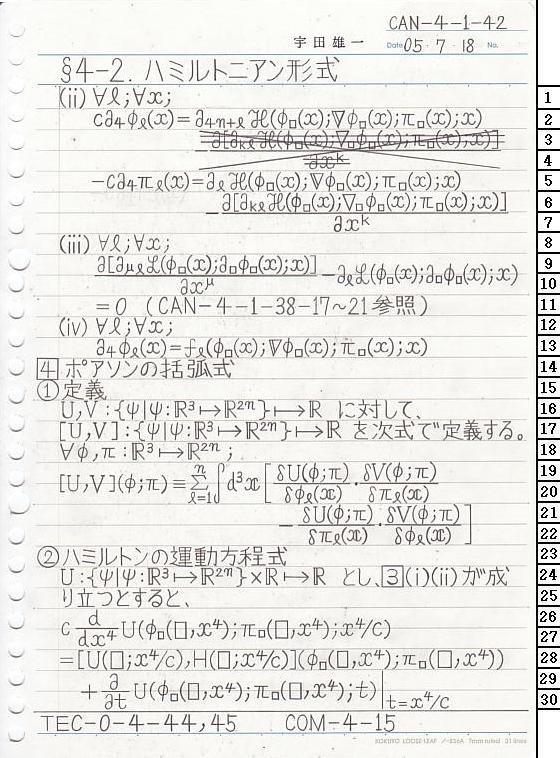 CAN-4-1-42
宇田雄一 Date 05・7・18 No.
§4-2. ハミルトニアン形式
(ii) ∀ℓ;∀x;
c∂₄φℓ(x)=∂₄ₙ₊ℓ ℋ(φ□(x);∇φ□(x);π□(x);x)
-∂[∂kℓℋ(φ□(x);∇□φ□(x);π□(x);x)]
∂xᵏ
-c∂₄πℓ(x)=∂ℓℋ(φ□(x);∇φ□(x);π□(x);x)
-∂[∂kℓℋ(φ□(x);∇□φ□(x);π□(x);x)]
∂xᵏ
(iii) ∀ℓ;∀x;
∂[∂μℓℒ(φ□(x);∂□φ□(x);x)]
∂x^μ -∂ℓℒ(φ□(x);∂□φ□(x);x)
=0 (CAN-4-1-38-17~21参照)
(iv) ∀ℓ;∀x;
∂₄φℓ(x)=fℓ(φ□(x);∇φ□(x);π□(x);x)
4 ポアソンの括弧式
①定義
U,V:{ψ|ψ:ℝ³↦ℝ²ⁿ}↦ℝ に対して、
[U,V]:{ψ|ψ:ℝ³↦ℝ²ⁿ}↦ℝ を次式で定義する。
∀φ,π:ℝ³↦ℝ²ⁿ;
[U,V](φ;π)≡Σ[ℓ=1→n]∫d³x[δU(φ;π)/δφℓ(x)・δV(φ;π)/δπℓ(x)
-δU(φ;π)/δπℓ(x)・δV(φ;π)/δφℓ(x)]
②ハミルトンの運動方程式
U:{ψ|ψ:ℝ³↦ℝ²ⁿ}×ℝ↦ℝ とし、3(i)(ii)が成
り立つとすると、
c d/dx⁴ U(φ□(□,x⁴);π□(□,x⁴);x⁴/c)
=[U(□;x⁴/c),H(□;x⁴/c)](φ□(□,x⁴);π□(□,x⁴))
+∂/∂t U(φ□(□,x⁴);π□(□,x⁴);t)|t=x⁴/c
TEC-0-4-44,45 COM-4-15
KOKUYO LOOSE-LEAF ノ-836A 7mm ruled 31 lines
1
2
3
4
5
6
7
8
9
10
11
12
13
14
15
16
17
18
19
20
21
22
23
24
25
26
27
28
29
30